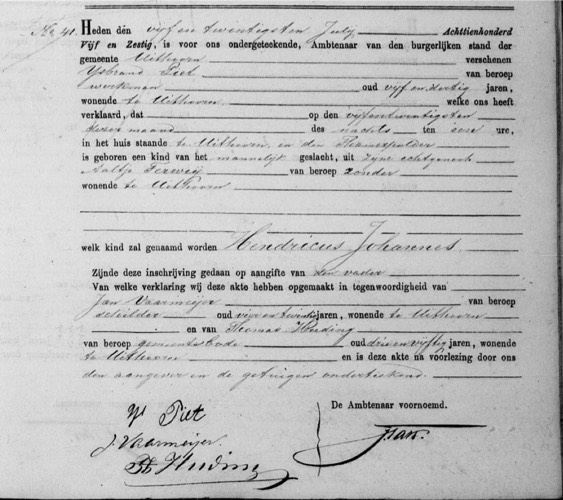 No 41. Heden den vijf en twintigsten July Achttienhonderd
Vijf en Zestig, is voor ons ondergeteekende, Ambtenaar van den burgerlijken stand der
gemeente Uithoorn verschenen
IJsbrand Piet van beroep
werkman oud vijf en dertig jaren,
wonende te Uithoorn welke ons heeft
verklaard, dat op den vijfentwintigsten
dezer maand des nachts ten eene ure,
in het huis staande te Uithoorn, en den Thamerpolder
is geboren een kind van het mannelijk geslacht, uit zijne echtgenoote
Aaltje Verweij van beroep zonder
wonende te Uithoorn
welk kind zal genaamd worden Hendricus Johannes
Zijnde deze inschrijving gedaan op aangifte van den vader
Van welke verklaring wij deze akte hebben opgemaakt in tegenwoordigheid van
Jan Vaarmeijer van beroep
schilder oud vier en twintig jaren, wonende te Uithoorn
en van Thomas Huding
van beroep gemeentebode oud drie en vijftig jaren, wonende
te Uithoorn en is deze akte na voorlezing door ons
den aangever en de getuigen onderteekend.
De Ambtenaar voornoemd.
Ys Piet
J. Vaarmeijer.
Th Huding